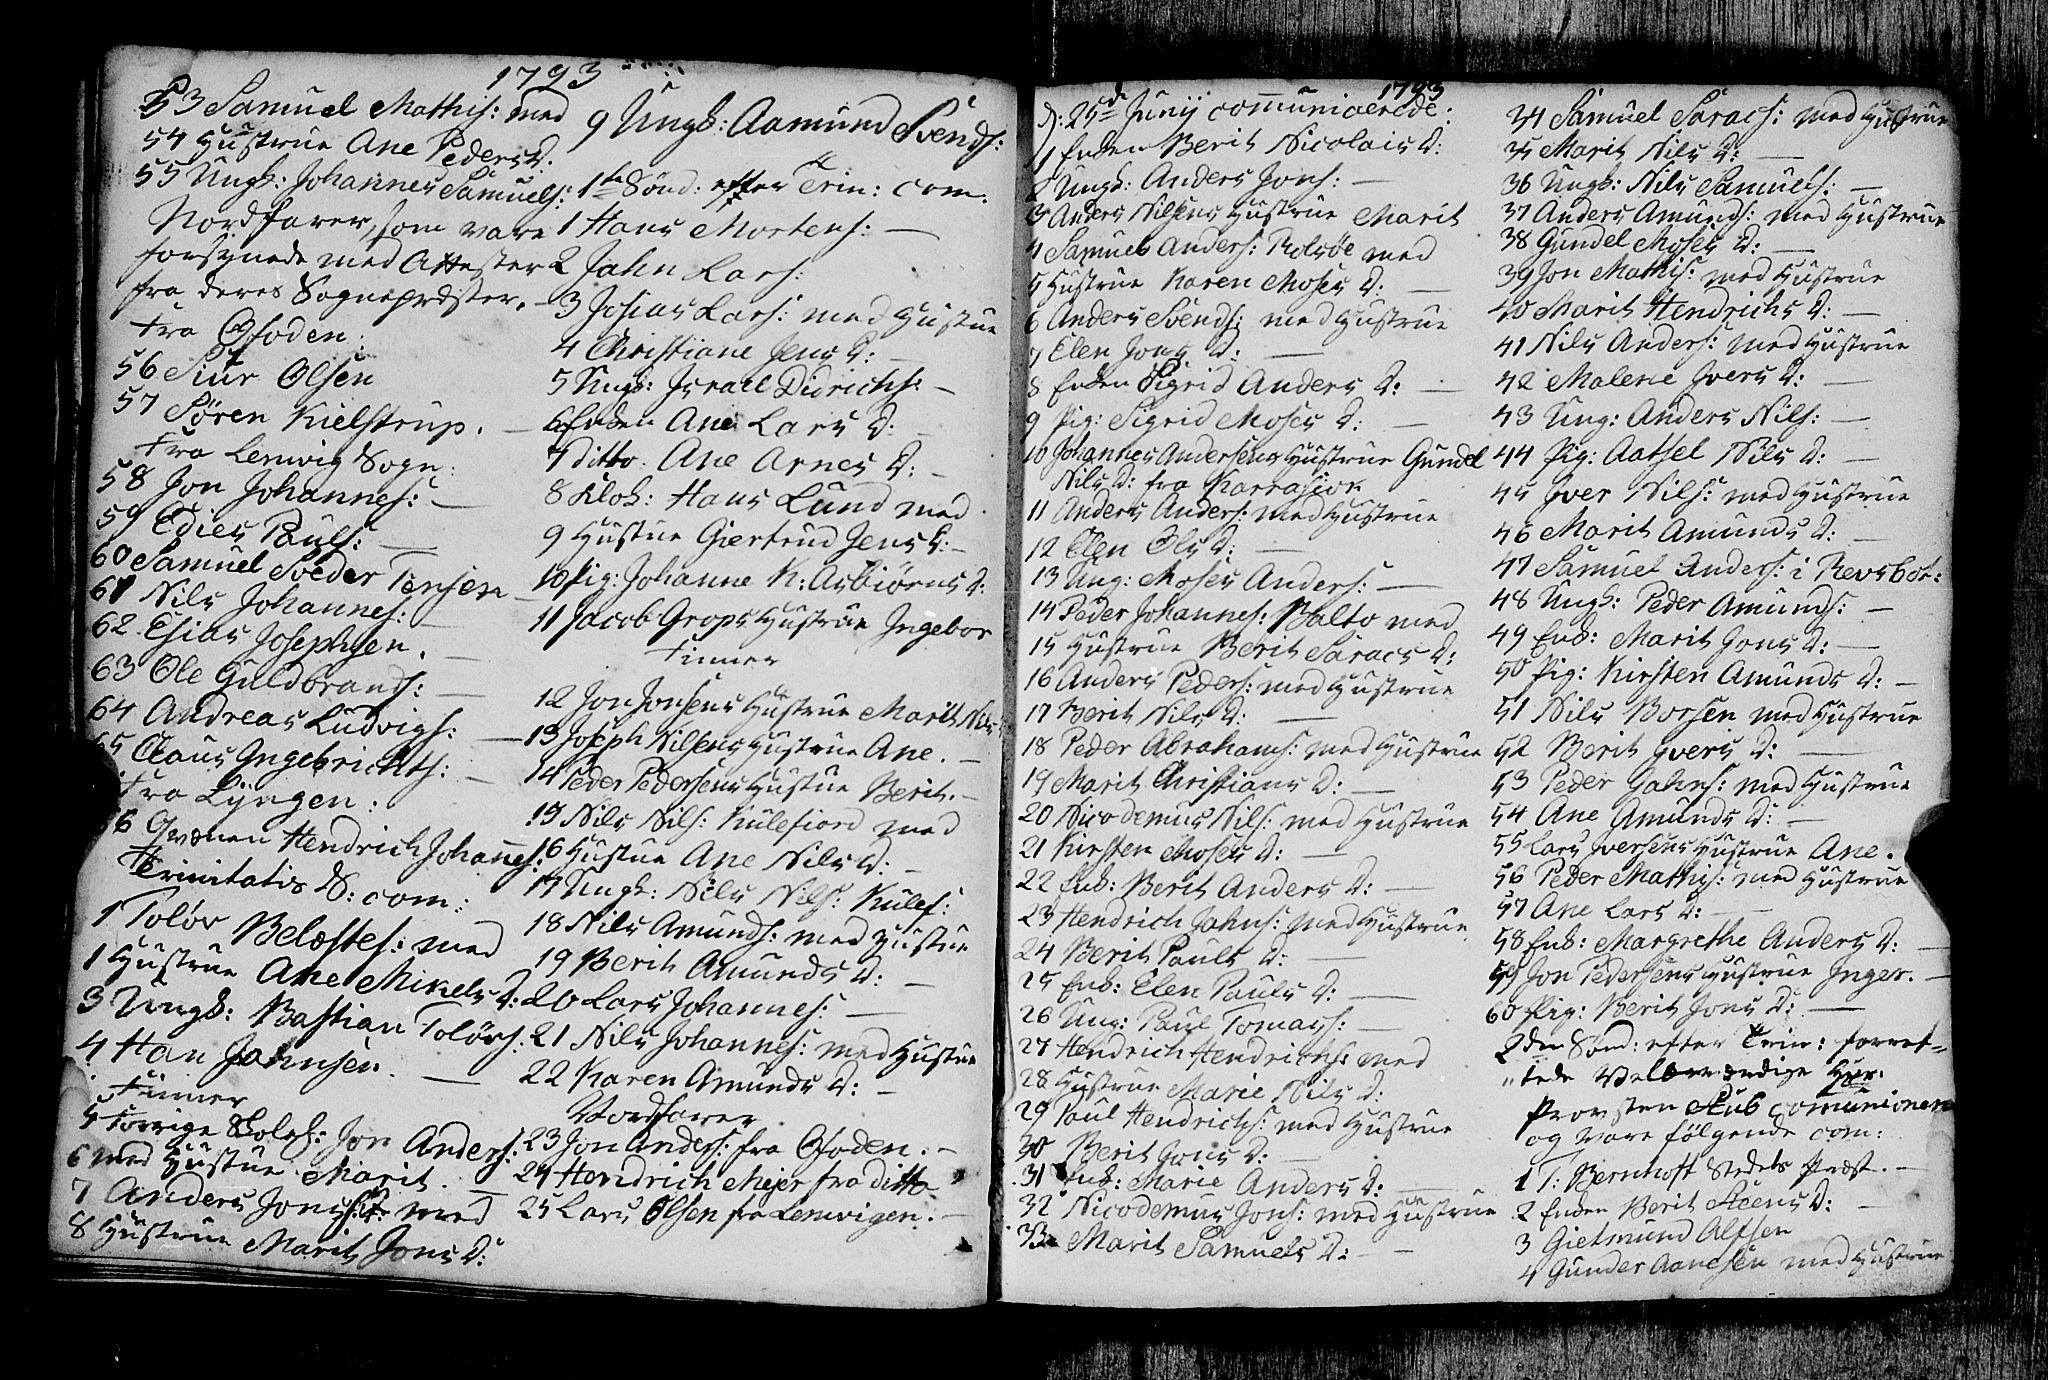 1793
53 Samuel Mathis: med
54 Hustrue Ane Peders D:
55 Ungk: Johannes Samuels:
Nordfarer, som vare
forsynede med Attester
fra deres Sognepræster.
Fra Ofoden:
56 Siur Olsen
57 Søren Kielstrup.
Fra Lenwig Sogn:
58 Jon Johannes: —
59 Edies Pauls: —
60 Samuel Peder Tensen
61 Nils Johannes: —
62 Esias Josephsen. —
63 Ole Guldbrands: —
64 Andreas Ludvigs: —
65 Claus Ingebrichts: —
Fra Lyngen:
66 Qvænen Hendrich Johannes:
Trinitatis S: com:
1 Toløv Belæstes: med
1 Hustrue Ane Mikels D:
3 Ungk: Bastian Toløvs:
4 Han Jahnsen. —
Finner
5 Forrige Skoleh: Jon Anders:
6 med Hustrue Marit. —
7 Anders Jons: med
8 Hustrue Marit Jons D:
9 Ungk: Aamund Svends:
1te Sønd: efter Trin: com.
1 Hans Mortens: —
2 Jahn Lars:
3 Josias Lars: med Hustue
4 Christiane Jens D: —
5 Ungk: Israel Didrichs: —
6 Enken Ane Lars D: —
7 ditto. Ane Arnes D: —
8 Klok: Hans Lund med
9 Hustue Giertrud Jens D: —
10 Pig: Johanne K: Asbiørns D:
11 Jacob Grops Hustrue Ingebor
Finner
12 Jon Jonsens Hustrue Marit Nils
13 Joseph Nilsens Hustrue Ane. —
14 Peder Pedersens Hustue Berit. —
15 Nils Nils: Kulefiord med
16 Hustue Ane Nils D: —
17 Ungk: Nils Nils: Kulef:
18 Nils Amunds: med Hustue
19 Berit Amunds D: —
20 Lars Johannes: —
21 Nils Johannes: med Hustue
22 Karen Amunds D: —
Nordfarer
23 Jon Anders: fra Ofoden. —
24 Hendrich Mejer fra ditto
25 Lars Olsen fra Lenwigen. —
1793
D: 25de Junij communicerede:
1 Enken Berit Nicolais D:
2 Ungk: Anders Jons: —
3 Anders Nilsens Hustrue Marit
4 Samuel Anders: Rolsøe med
5 Hustrue Karen Moses D: —
6 Anders Svends: med Hustrue
7 Elen Jons D: —
8 Enken Sigrid Anders D: —
9 Pig: Sigrid Moses D: —
10 Johannes Andersens Hustrue Gundel
Nils D: fra Karrasiok
11 Anders Anders: med Hustrue
12 Elen Ols D: —
13 Ung: Moses Anders: —
14 Peder Johannes: Balto med
15 Hustrue Berit Saracs D:
16 Anders Peders: med Hustrue
17 Berit Nils D: —
18 Peder Abrahams: med Hustrue
19 Marit Christians D: —
20 Nicodemus Nils: med Hustrue
21 Kirsten Moses D: —
22 Enk: Berit Anders D: —
23 Hendrich Jahns: med Hustrue
24 Berit Pauls D: —
25 Enk: Elen Pauls D: —
26 Ung: Paul Tomas: —
27 Hendrich Hendrichs: med
28 Hustrue Marie Nils D:
29 Paul Hendrichs: med Hustrue
30 Berit Jons D: —
31 Enk: Marie Anders D: —
32 Nicodemus Jons: med Hustrue
33 Marit Samuels D: —
34 Samuel Saracs: med Hustrue
35 Marit Nils D: —
36 Ungk: Nils Samuels: —
37 Anders Amunds: med Hustrue
38 Gundel Moses D: —
39 Jon Mathis: med Hustrue
40 Marit Hendrichs D: —
41 Nils Anders: med Hustrue
42 Malene Ivers D: —
43 Ung: Anders Nils: —
44 Pig: Aatsel Nils D: —
45 Iver Nils: med Hustrue
46 Marit Amunds D: —
47 Samuel Anders: i Revsbot:
48 Ungk: Peder Amunds: —
49 Enk: Marit Jons D: —
50 Pig: Kirsten Amunds D: —
51 Nils Borsen med Hustrue
52 Berit Ivers D: —
53 Peder Jahns: med Hustrue
54 Ane Amunds D: —
55 Lars Iversens Hustrue Ane.
56 Peder Mathis: med Hustrue
57 Ane Lars D: —
58 Enk: Margrethe Anders D: —
59 Jon Pedersens Hustrue Inger. —
60 Pig: Berit Jons D: —
2den Sønd: efter Trin: forret-
tede Velærværdige Hr:
Provsten Kub comunionen
og vare følgende com:
1 T: Bernhoft Stedets Præst. —
2 Enken Berit Steens D: —
3 Gietmund Alfsen
4 Gunder Aanesen med Hustrue